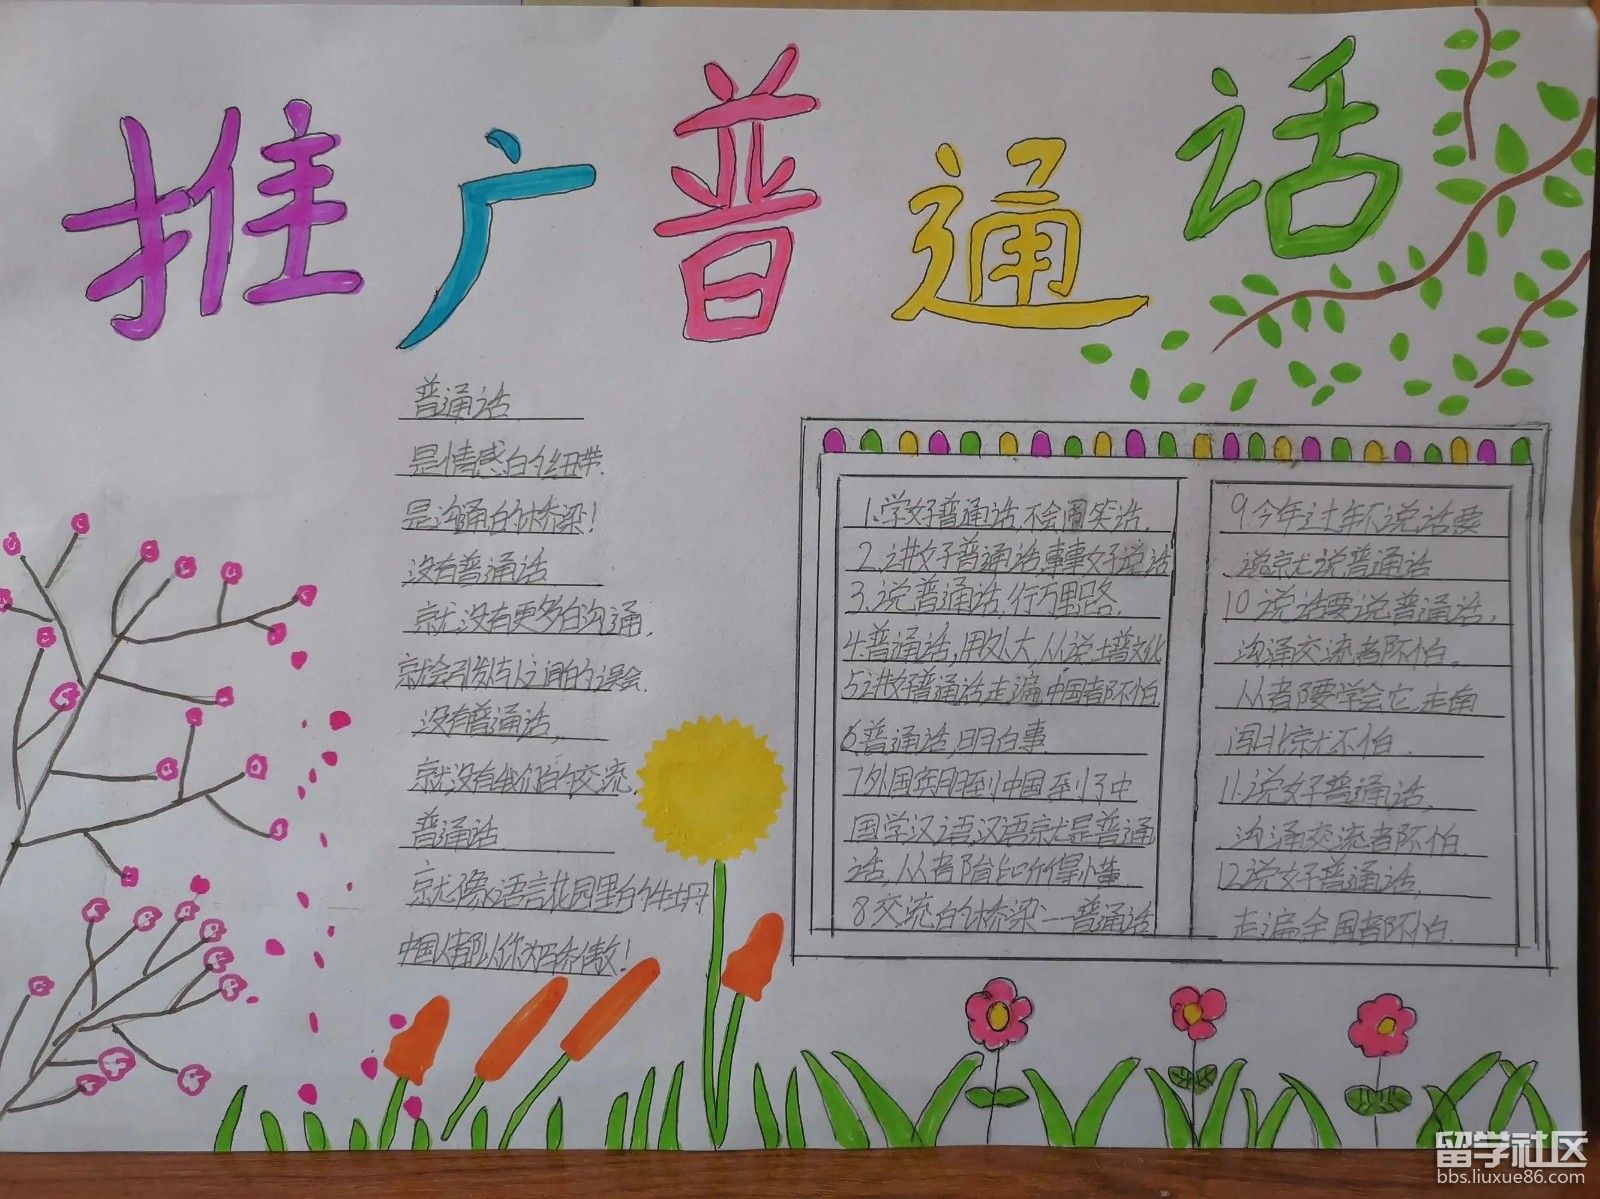 推广普通话
普通话
是情感的纽带.
是沟通的桥梁!
没有普通话
就没有更多的沟通,
就会引发人与人之间的误会.
没有普通话,
就没有我们的交流.
普通话
就像语言花园里的牡丹
中国人都以你为骄傲!
1.学好普通话,不会闹笑话.
2.讲好普通话,事事好说话
3.说普通话,行万里路.
4.普通话,用处大,从说
5.讲好普通话走遍中国都不怕.
6.普通话,明白事
7.外国朋友到中国,到了中
国学汉语,汉语就是普通
话,人人都能听得懂.
8.交流的桥梁——普通话
9.今年过年不说话要
说就说普通话
10.说话要说普通话,
沟通交流都不怕。
人人都要学会它,走南
闯北就不怕.
11.说好普通话,
沟通交流都不怕.
12.说好普通话,
走遍全国都不怕.
留学社区
bbs.liuxue86.com